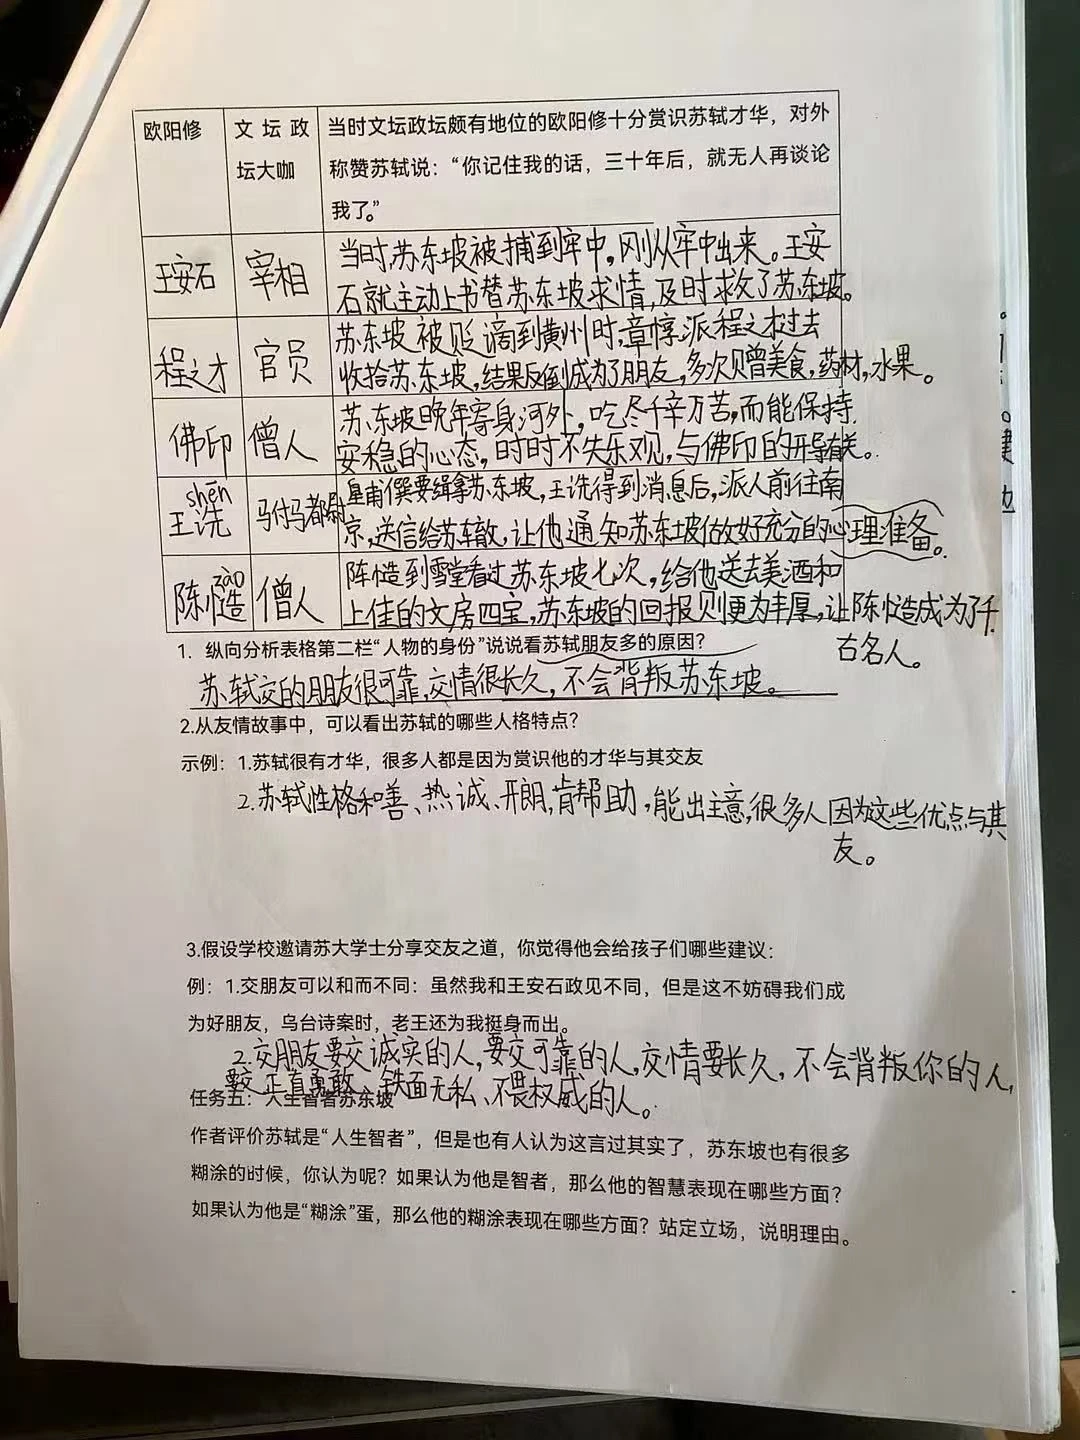 欧阳修 文坛政坛大咖 当时文坛政坛颇有地位的欧阳修十分赏识苏轼才华，对外
称赞苏轼说：“你记住我的话，三十年后，就无人再谈论
我了。”
王安石 宰相 当时，苏东坡被捕到牢中，刚从牢中出来。王安
石就主动上书替苏东坡求情，及时求救了苏东坡。
程之才 官员 苏东坡被贬谪到黄州时，章惇派程之才过去
收拾苏东坡，结果反倒成为了朋友，多次赠美食，药材，水果。
佛印 僧人 苏东坡晚年寄身河外，吃尽千辛万苦，而能保持
安稳的心态，时时不失乐观，与佛印的开导有关。
shēn
王诜 马付马都尉 皇甫僎要缉拿苏东坡，王诜得到消息后，派人前往南
京，送信给苏辙，让他通知苏东坡做好充分的心理准备。
zào
陈慥 僧人 陈慥到雪堂看过苏东坡七次，给他送去美酒和
上佳的文房四宝，苏东坡的回报则更为丰厚，让陈慥成为了千
古名人。
1. 纵向分析表格第二栏“人物的身份”说说看苏轼朋友多的原因？
苏轼交的朋友很可靠，交情很长久，不会背叛苏东坡。
2.从友情故事中，可以看出苏轼的哪些人格特点？
示例：1.苏轼很有才华，很多人都是因为赏识他的才华与其交友
2.苏轼性格和善、热诚、开朗，肯帮助，能出主意，很多人因为这些优点与其
友。
3.假设学校邀请苏大学士分享交友之道，你觉得他会给孩子们哪些建议：
例：1.交朋友可以和而不同：虽然我和王安石政见不同，但是这不妨碍我们成
为好朋友，乌台诗案时，老王还为我挺身而出。
2.交朋友要交诚实的人，要交可靠的人，交情要长久，不会背叛你的人，
要交正直勇敢、铁面无私、不畏权威的人。
任务五：人生智者苏东坡
作者评价苏轼是“人生智者”，但是也有人认为这言过其实了，苏东坡也有很多
糊涂的时候，你认为呢？如果认为他是智者，那么他的智慧表现在哪些方面？
如果认为他是“糊涂”蛋，那么他的糊涂表现在哪些方面？站定立场，说明理由。